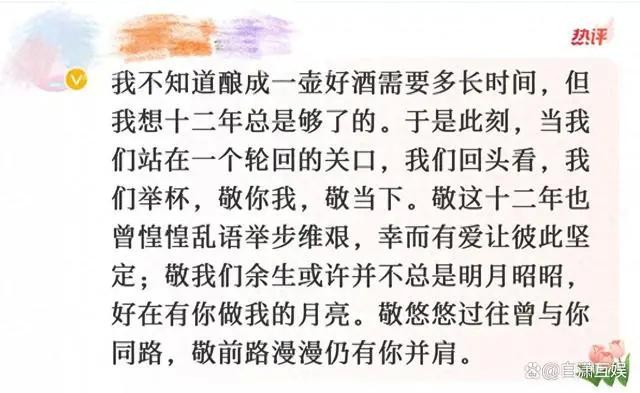 热评
我不知道酿成一壶好酒需要多长时间，但
我想十二年总是够了的。于是此刻，当我
们站在一个轮回的关口，我们回头看，我
们举杯，敬你我，敬当下。敬这十二年也
曾惶惶乱语举步维艰，幸而有爱让彼此坚
定；敬我们余生或许并不总是明月昭昭，
好在有你做我的月亮。敬悠悠过往曾与你
同路，敬前路漫漫仍有你并肩。
@自潇互娱